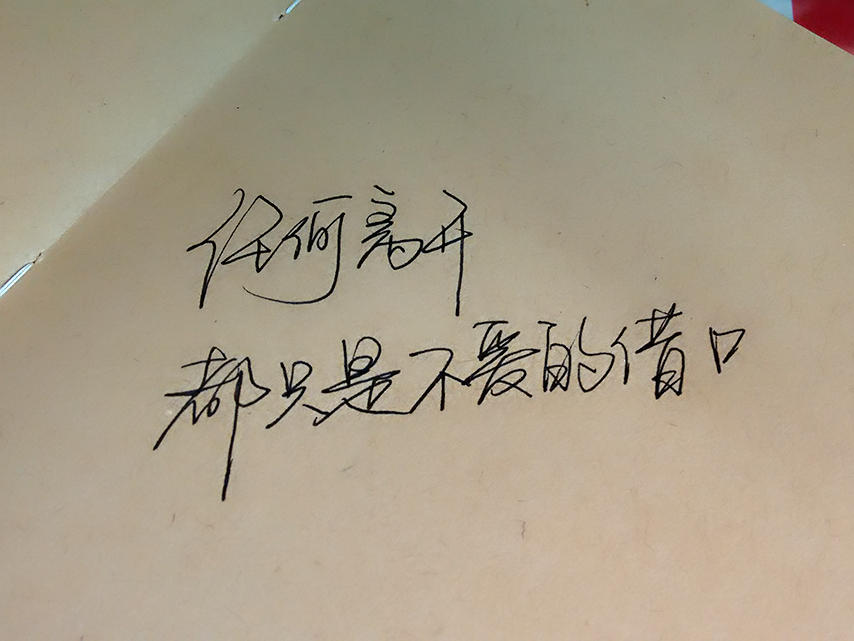 任何离开
都只是不爱的借口